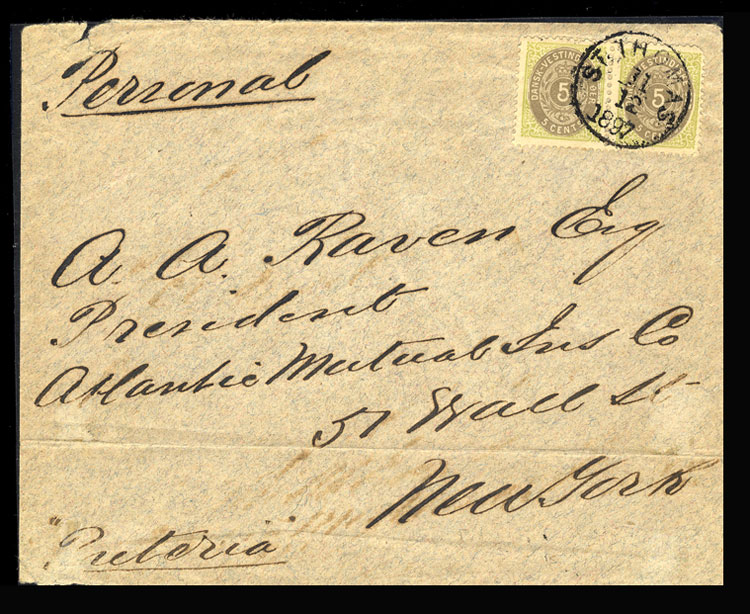 Personal
DANSK-VESTIND
5
5 CENT
DANSK-VESTINDI
5
5 CENT
ST. THOMAS
11
12
1897
A. A. Raven Esq
President
Atlantic Mutual Ins Co
51 Wall St
New York
"Pretoria"